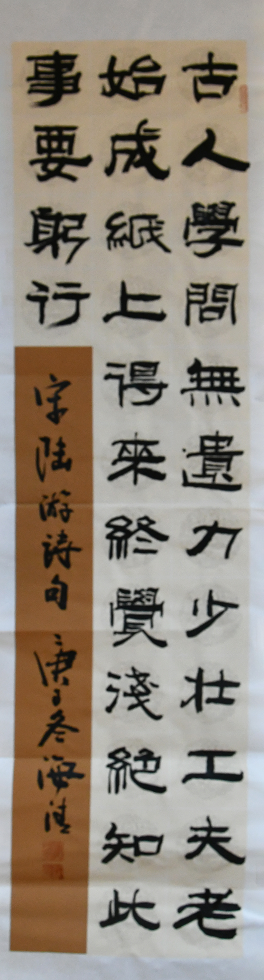 古人學問無遺力少壯工夫老
始成紙上得來終覺淺絕知此
事要躬行
宋陆游詩句 庚子冬海清